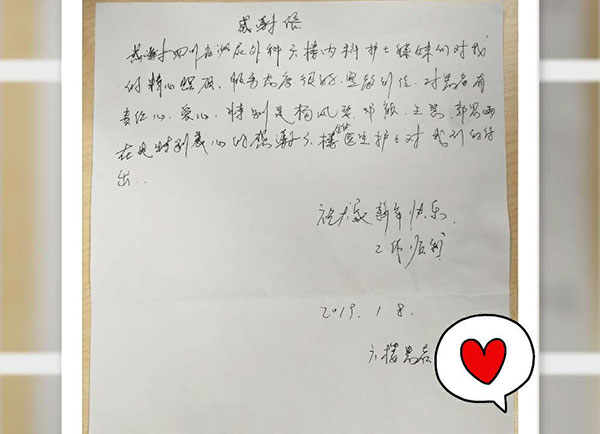 感谢信
感谢四川省泌尿外科六楼内科护士妹妹们对我
的精心照顾，服务态度很好，思敬到位，对患者有
责任心，爱心，特别是杨凤 邓 王思，郭思雨
在此特别衷心的感谢六楼全体医生护士对我们的付
出..
祝大家新年快乐
工作顺利
2019. 1 8.
六楼患者